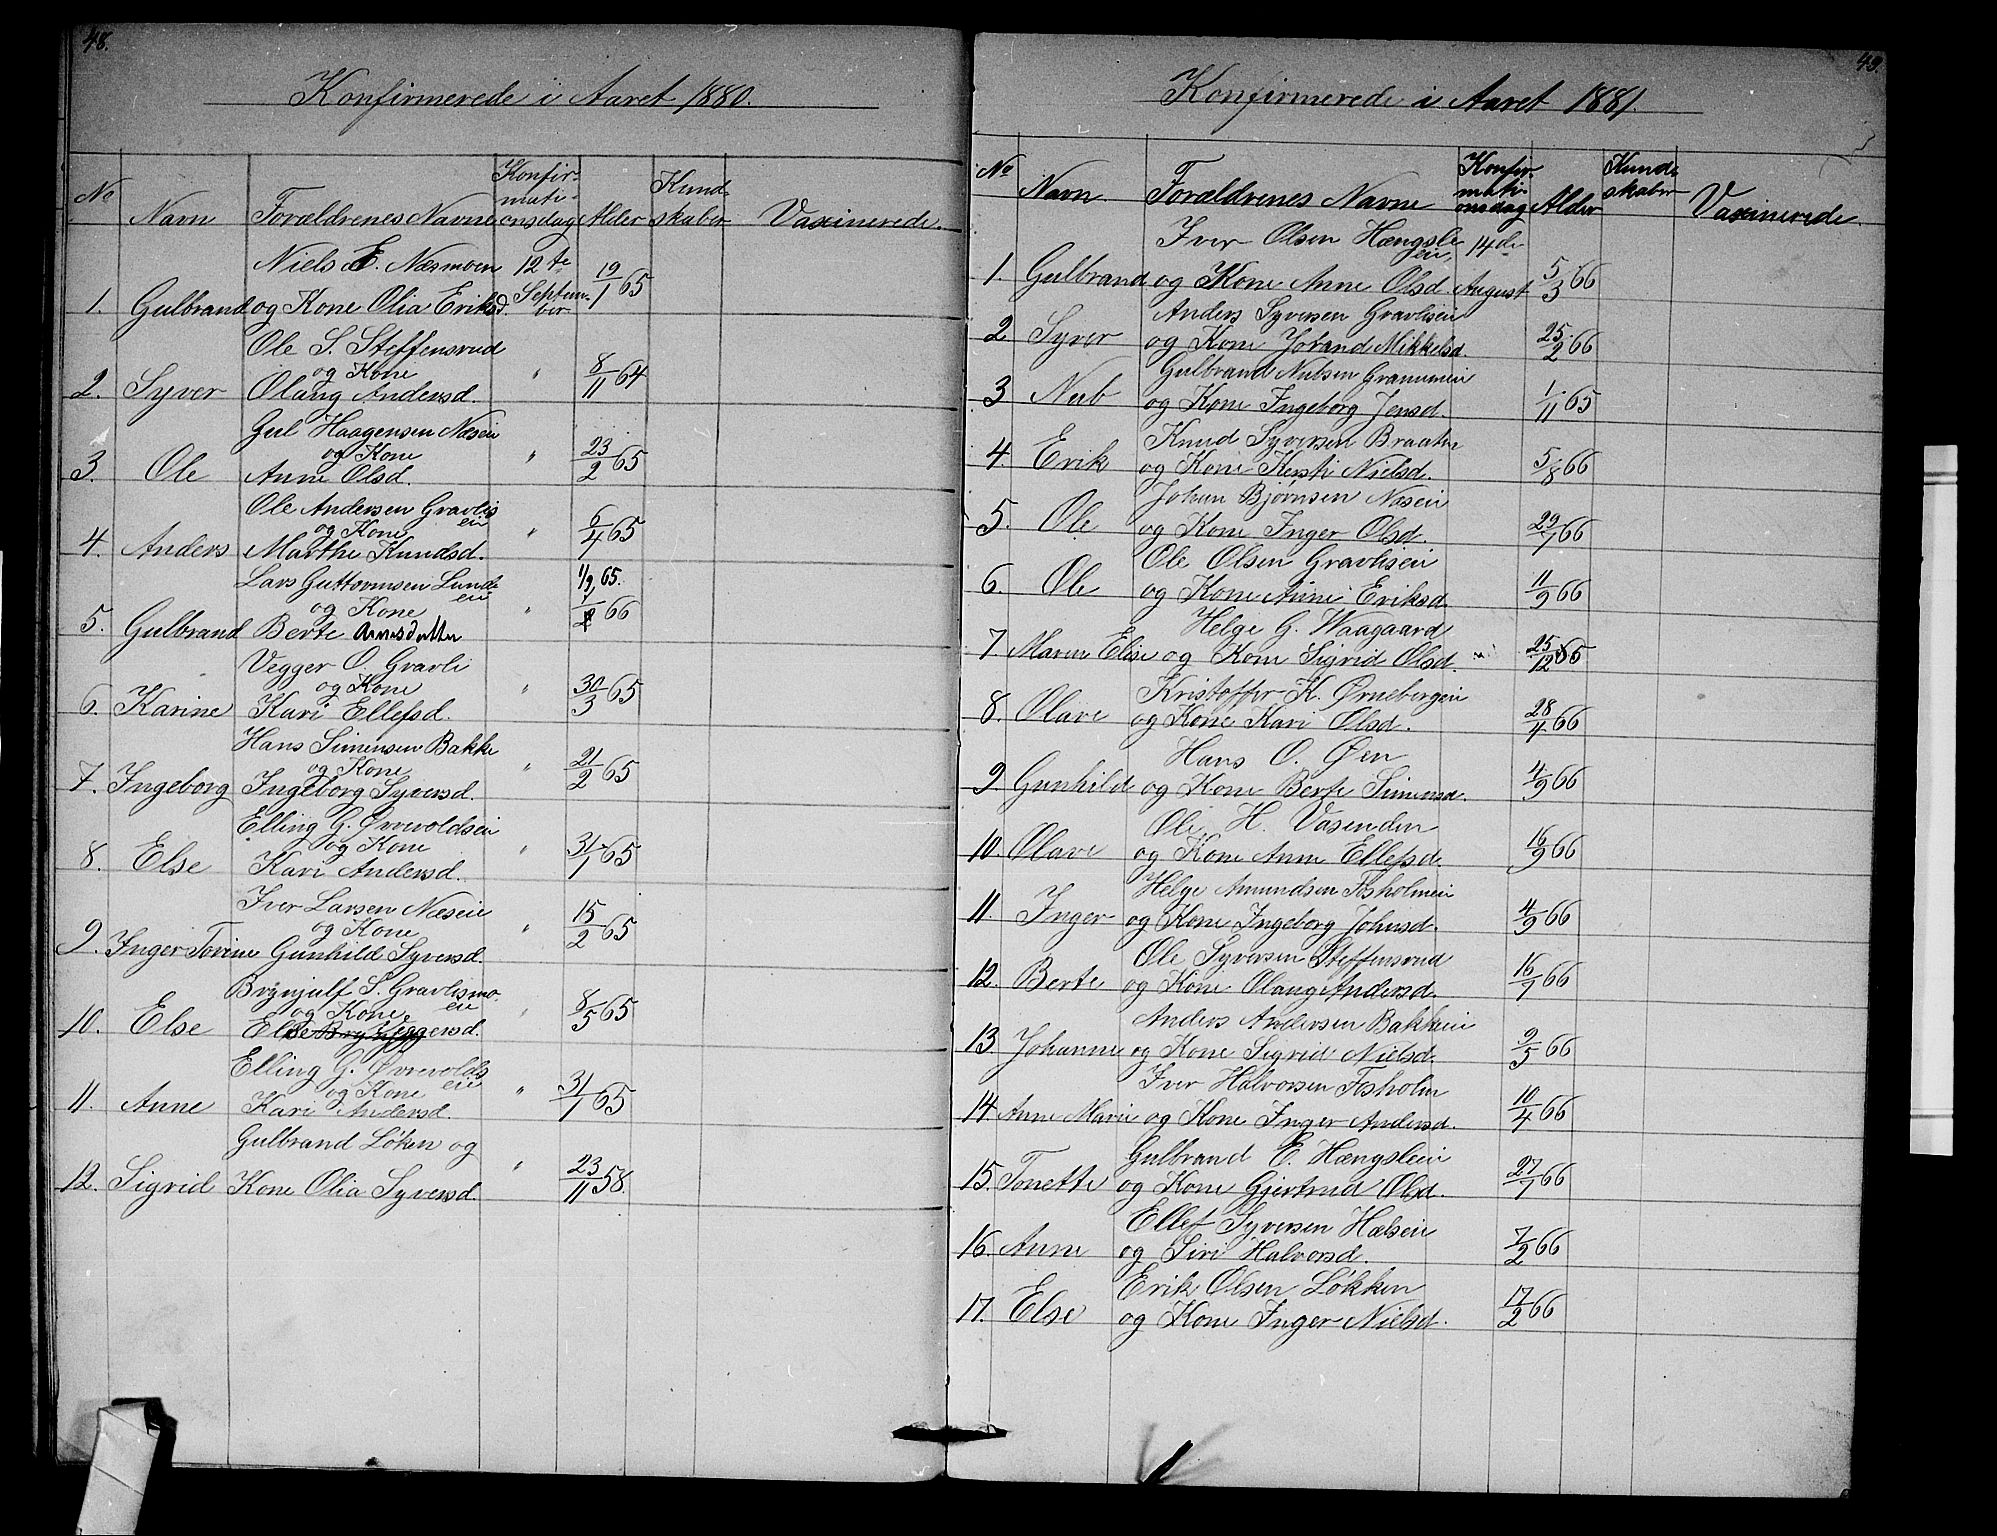 48.
Konfirmerede i Aaret 1880.
No Navn Forældrenes Navne Konfirmationsdag Alder Kundskaber Vaxinerede.
Niels E. Næsmoen 12te
1. Gulbrand og Kone Olia Eriksd. September 19/1 65
Ole S. Steffensrud
og Kone
2. Syver Olaug Andersd. " 8/11 64
Gul Haagensen Næseie
og Kone
3. Ole Anne Olsd. " 23/2 65
Ole Andersen Gravliseie
og Kone
4. Anders Marthe Knudsd. " 6/4 65
Lars Guttormsen Lundeeie 1/9 65.
og Kone
5. Gulbrand Berte Arnesdatter " 66
Vegger O. Gravli
og Kone
6. Karine Kari Ellefsd. " 30/3 65
Hans Simensen Bakke
og Kone
7. Ingeborg Ingeborg Syversd. " 21/2 65
Elling G. Øvrevoldseie
og Kone
8. Else Kari Andersd. " 31/1 65
Iver Larsen Næseie
og Kone
9. Inger Torine Gunhild Syversd. " 15/2 65
Brynjulf S. Gravlismoeie
og Kone
10. Else Veggersd. " 8/5 65
Elling G. Øvrevoldseie
og Kone
11. Anne Kari Andersd. " 31/1 65
Gulbrand Løken og
12. Sigrid Kone Olia Syversd. " 23/11 58.
49.
Konfirmerede i Aaret 1881.
No Navn. Forældrenes Navne Konfirmationsdag Alder Kundskaber Vaxinerede.
Iver Olsen Hængsleeie, 14de
1. Gulbrand og Kone Anne Olsd. August 5/3 66
Anders Syversen Gravliseie
2. Syver og Kone Jørand Mikkelsd. 25/2 66
Gulbrand Nubsen Granumeie
3 Nub og Kone Ingeborg Jensd. 1/11 65
Knud Syversen Braaten
4. Erik og Kone Kersti Nielsd. 5/8 66
Johan Bjørnsen Næseie
5. Ole og Kone Inger Olsd. 29/1 66
Ole Olsen Gravliseie
6. Ole og Kone Anne Eriksd. 11/9 66
Helge G. Waagaard
7. Maren Elise og Kone Sigrid Olsd. 25/12 65
Kristoffer K. Ørnebergeie
8. Olave og Kone Kari Olsd. 28/4 66
Hans O. Øen
9. Gunhild og Kone Berte Simensd. 4/9 66
Ole H. Vasenden
10. Olave og Kone Anne Ellefsd. 16/9 66
Helge Amundsen Fosholmeie
11. Inger og Kone Ingeborg Johnsd. 4/9 66
Ole Syversen Steffensrud
12. Berte og Kone Olaug Andersd. 16/7 66
Anders Andersen Bakkeeie
13. Johanne og Kone Sigrid Nielsd. 9/5 66
Iver Halvorsen Fosholm
14. Anne Marie og Kone Inger Andersd. 10/4 66
Gulbrand E. Hængsleeie
15. Tonette og Kone Gjertrud Olsd. 27/1 66
Ellef Syversen Hælseie
16. Anne og Siri Halvorsd. 7/2 66
Erik Olsen Løkken
17. Else og Kone Inger Nielsd. 17/2 66